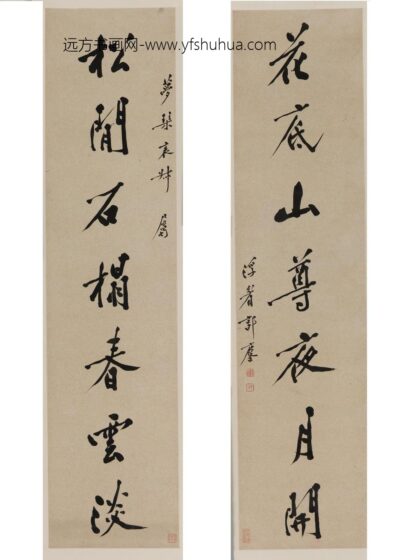 远方书画网-www.yfshuhua.com
花底山尊夜月開
浮眉郭麐
夢琹表叔 屬
松閒石榻春雲淡